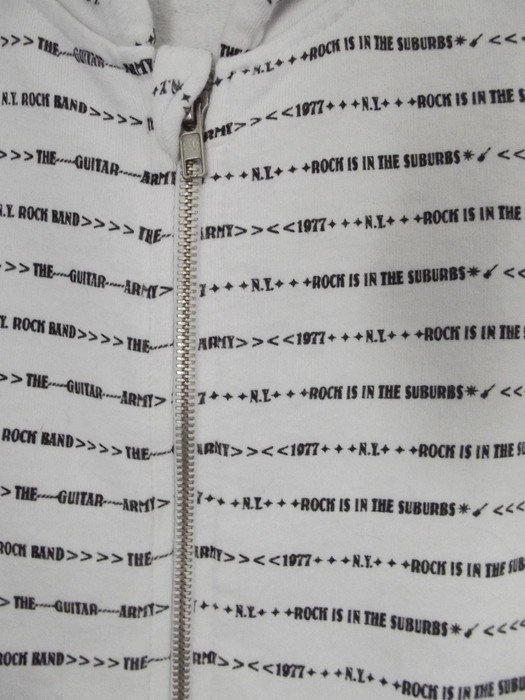 >>> THE----GUITAR----ARMY THE + + N.Y. + + +ROCK IS IN THE SUBURBS* <<
N.Y. ROCK BAND>>>> ARMY>><<1977+ + +N.Y.+ + +ROCK IS IN THE S
>>THE----GUITAR----ARMY + + + N.Y.+ + +ROCK IS IN THE SUBURBS* <<
N.Y. ROCK BAND>>>>THE---- ARMY>><<1977+ + +N.Y.+ + +ROCK IS IN THE
>>THE----GUITAR----ARMY> 7+ + +N.Y.+ + +ROCK IS IN THE SUBURBS* <<
Y. ROCK BAND>>>>THE---- ARMY>><<1977+ + +N.Y.+ + +ROCK IS IN THE
>>THE----GUITAR----ARMY> 7+ + +N.Y.+ + +ROCK IS IN THE SUBURBS* <<
ROCK BAND>>>>THE---- ARMY>><<1977+ + +N.Y.+ + +ROCK IS IN THE SU
>THE----GUITAR----ARMY> 7+ + +N.Y.+ + +ROCK IS IN THE SUBURBS* <<<
ROCK BAND>>>>THE---- ARMY>><<1977+ + +N.Y.+ + +ROCK IS IN THE SUB
>THE----GUITAR----ARMY> + + +N.Y.+ + +ROCK IS IN THE SUBURBS* <<<<
ROCK BAND>>>>THE---- RMY>><<1977+ + +N.Y.+ + +ROCK IS IN THE SUB